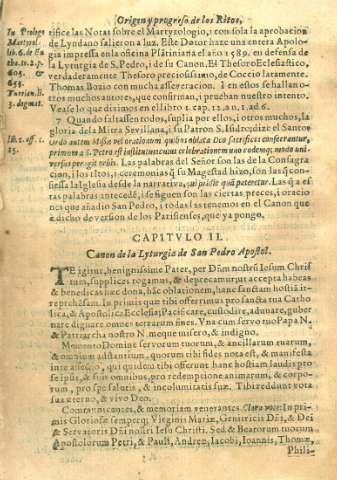 Origen y progreso de los Ritos,
In Prologo
Martyrol.
lib. 6. de Eu
rifice las Notas sobre el Martyrologio, con sola la aprobacion
de Lyndano salieron a luz. Este Dotor haze una entera Apolo
gia impressa en la oficina Platiniana el año 1589. en defensa de
la Lyturgia de S. Pedro, i de su Canon. El Thesoro Eclesiastico,
verdaderamente Thesoro preciosissimo, de Coccio laramente.
Thomas Bozio con mucha asseveracion. I en estos se hallan o-
tros muchos autores, que confirman, i prueban nuestro intento.
Vease lo que diximos en el libro 1. cap. 12. an. 1. ad 6.
7 Quando faltassen todos, suplia por ellos, i otros muchos, la
gloria de la Mitra Sevillana, i su Patron S. Isidro; dize el Santo:
lib. 1. off. c.
15.
Ordo autem Missæ vel orationum quibus oblata Deo sacrificia consecrantur,
primum a S. Petro est institutus cuius celebrationem uno eodemque modo uni-
versus peragit orbis. Las palabras del Señor son las de la Consagra
cion, i los ritos, i ceremonias que su Magestad hizo, son las que con-
fiessa la Iglesia desde la narrativa, qui pridie quam pateretur. Las que a es-
tas palabras antecede, i se siguen son las ciertas preces, i oracio
nes que añadio San Pedro, i todas las tenemos en el Canon que
a dicho de version de los Parisienses, que ya pongo.
CAPITVLO II.
Canon de la Lyturgia de San Pedro Apostol.
TE igitur, benignissime Pater, per Dñm nostrũ Iesum Chris
tum, supplices rogamus, & deprecamur ut accepta habeas
& benedicas hæc dona, hãc oblationem, hanc sanctam hostiã ir-
reprehẽsam. In primis quæ tibi offerimus pro sancta tua Catho
lica, & Apostolica Ecclesia; Pacificare, custodire, adunare, guber
nare digneris omnes terrarum fines. Vna cum servo tuo Papa N.
& Patriarcha nostro N. meque misero, & indigno.
Memento Domine servorum tuorum, & ancillarum tuarum,
& omnium adstantium, quorum tibi fides nota est, & manifesta
inte assequi, qui quidem tibi offerunt hanc hostiam laudis pro
se ipsis, & suis omnibus, pro redemptione animarum, & corpo-
rum, pro spe salutis, & incolumitatis suæ. Tibi reddunt vota
sua æterno, & vivo Deo.
Communicantes, & memoriam venerantes. Clara voce: In pri-
mis Gloriosæ semperq; Virginis Mariæ, Genitricis Dñi, & Dei
& Servatoris Dñi nostri Iesu Christi. Sed & Beatorum tuorum
Apostolorum Petri, & Pauli, Andreæ, Iacobi, Ioannis, Thomæ,
Phila-